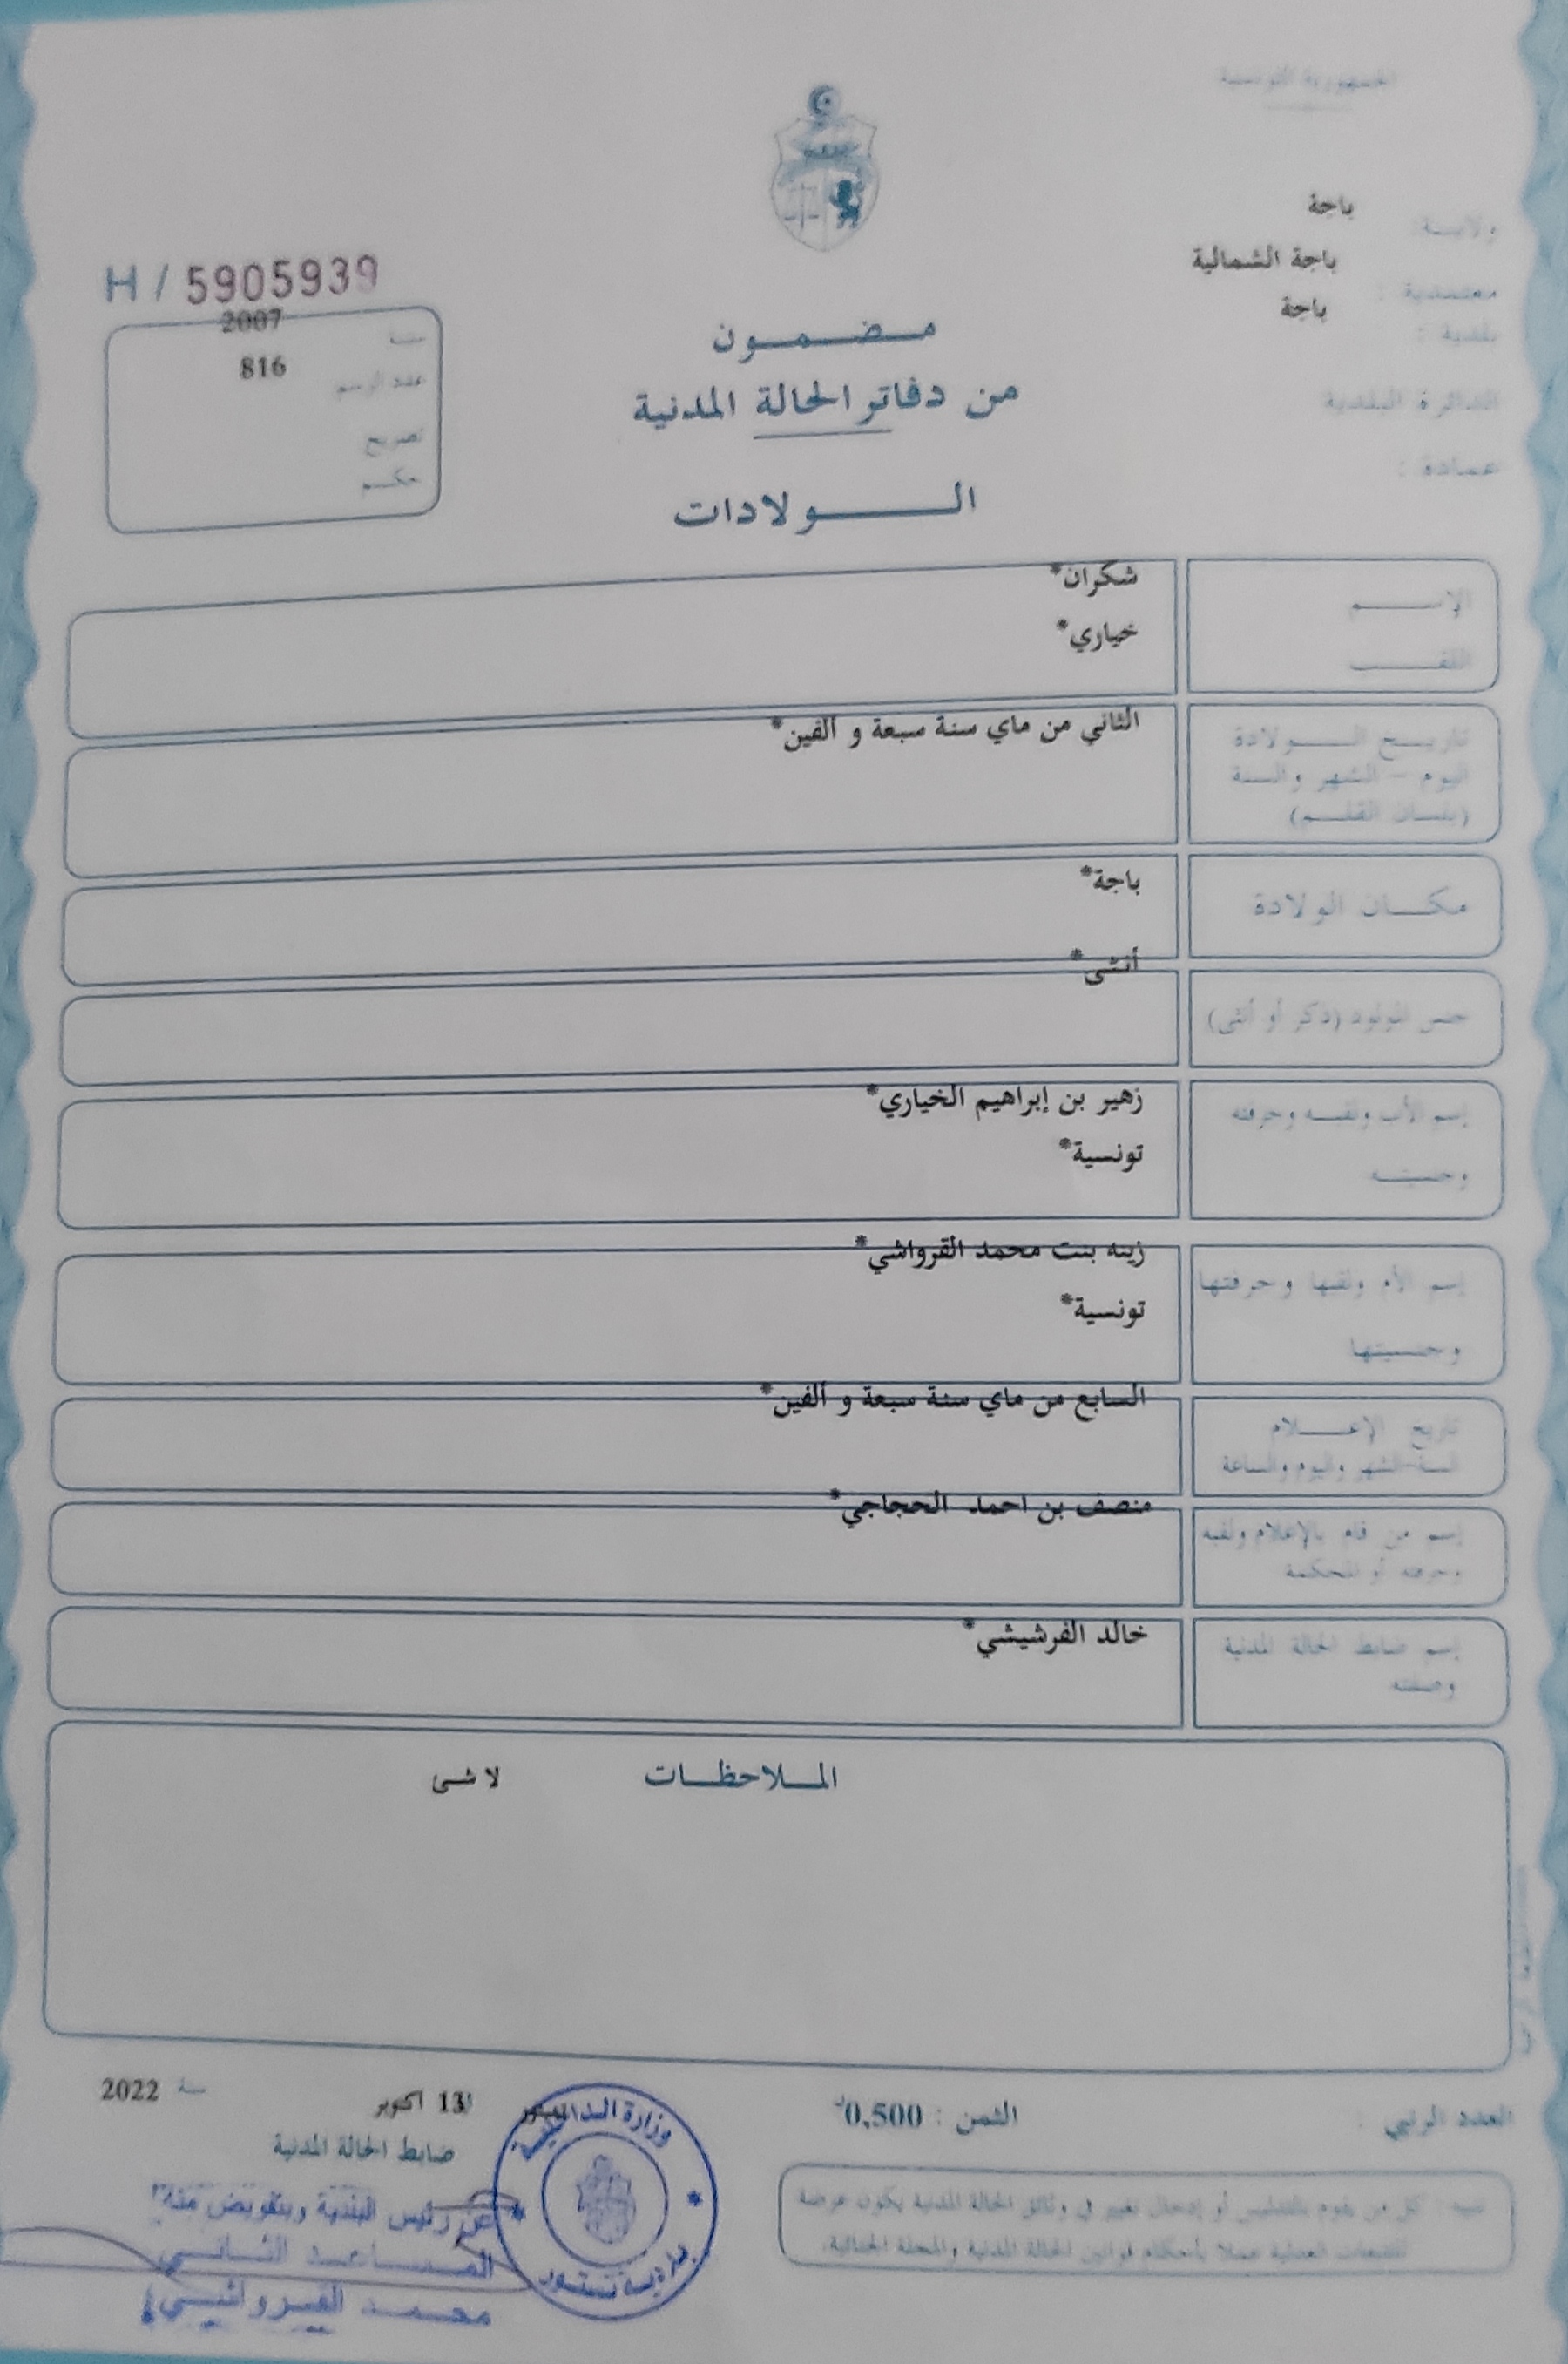 الجمهورية التونسية
ولايـــة: باجة
معتمدية : باجة الشمالية
بلدية : باجة
الدائرة البلدية
عمادة :
H / 5905939
سنة 2007
عدد الرسم 816
تصريح
حكم
مضمون
من دفاتر الحالة المدنية
الولادات
الإسم شكران*
اللقب خياري*
تاريخ الولادة
اليوم - الشهر والسنة
(بلسان القلم)
الثاني من ماي سنة سبعة و ألفين*
مكان الولادة باجة*
جنس المولود (ذكر أو أنثى) أنثى*
إسم الأب ولقبه وحرفته زهير بن إبراهيم الخياري*
وجنسيته تونسية*
إسم الأم ولقبها وحرفتها زينه بنت محمد القرواشي*
وجنسيتها تونسية*
تاريخ الإعلام
السنة-الشهر واليوم والساعة
السابع من ماي سنة سبعة و ألفين*
إسم من قام بالإعلام ولقبه
وحرفته أو المحكمة
منصف بن احمد الحجاجي*
إسم ضابط الحالة المدنية
وصفته
خالد الفرشيشي*
الملاحظات لا شى
العدد الرتبي :
الثمن : 0,500د
13 اكتوبر سنة 2022
ضابط الحالة المدنية
عن رئيس البلدية وبتفويض منه
المساعد الثاني
محمد
وزارة الداخلية
بلدية تستور
تنبيه : كل من يقوم بالتدليس أو إدخال تغيير في وثائق الحالة المدنية يكون عرضة
للتتبعات العدلية عملا بأحكام قوانين الحالة المدنية والمجلة الجنائية.